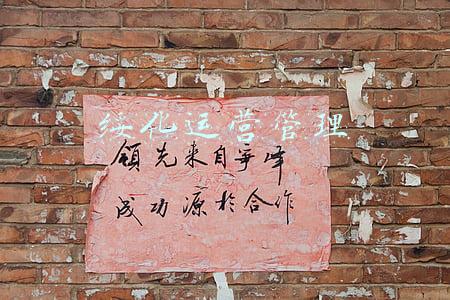 绥化运营管理
領先来自争峰
成功源於合作